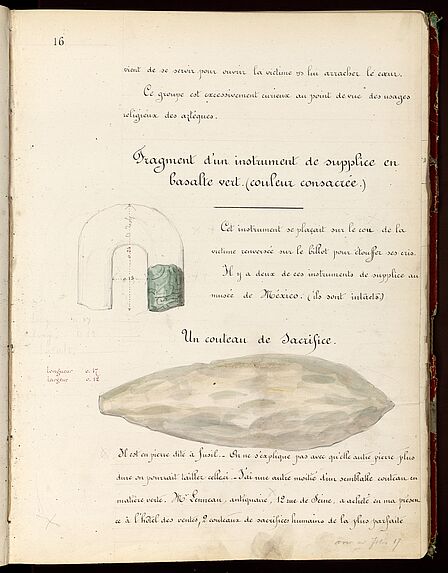 16
vient de se servir pour ouvrir la victime et lui arracher le cœur.
Ce groupe est excessivement curieux au point de vue des usages
religieux des aztèques.
Fragment d'un instrument de supplice en
basalte vert. (couleur consacrée.)
Cet instrument se plaçait sur le cou de la
victime renversée sur le billot pour étouffer ses cris.
Il y a deux de ces instruments de supplice au
musée de México. (ils sont intacts)
Un couteau de Sacrifice.
Longueur 0.17
Largeur 0.12
Il est en pierre dite à fusil. – On ne s'explique pas avec qu'elle autre pierre plus
dure on pourrait tailler celle-ci – J'ai une autre moitié d'un semblable couteau en
matière verte. Mr. Lenneau, antiquaire, 12 rue de Seine, a acheté en ma présen
ce à l'hôtel des ventes, 2 couteaux de sacrifices humains de la plus parfaite